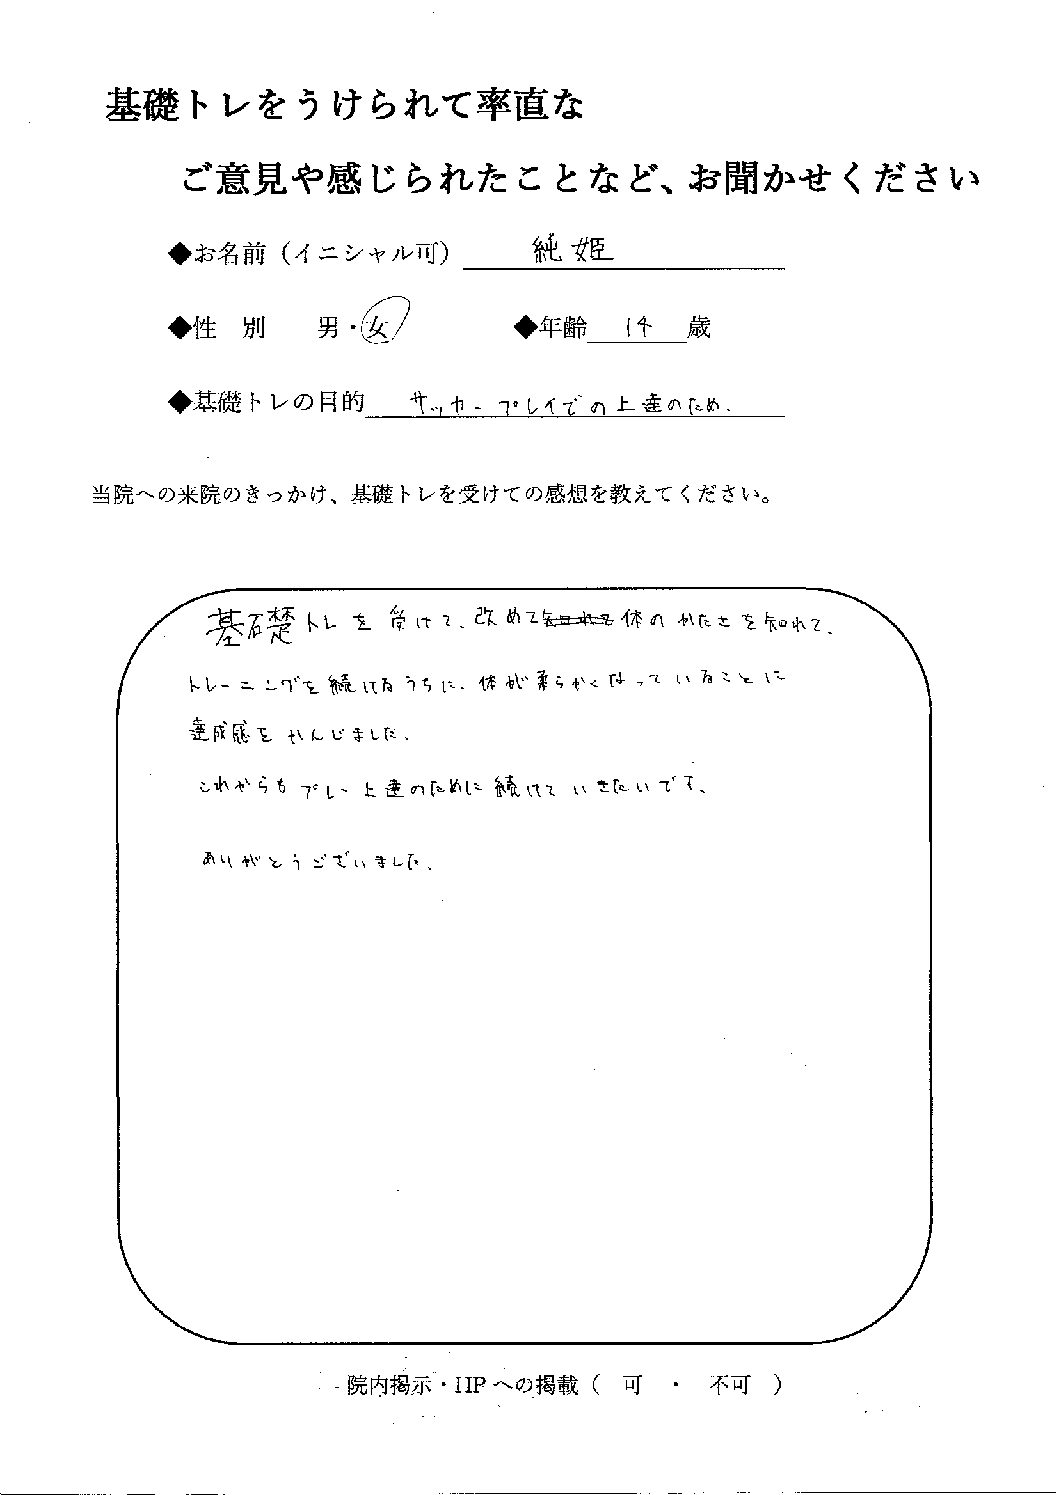 基礎トレをうけられて率直な
ご意見や感じられたことなど、お聞かせください
◆お名前（イニシャル可） 純姫
◆性 別 男・女 ◆年齢 14 歳
◆基礎トレの目的 サッカープレイでの上達のため.
当院への来院のきっかけ、基礎トレを受けての感想を教えてください。
基礎トレを受けて、改めて体のかたさを知れて、
トレーニングを続けるうちに、体が柔らかくなっていることに
達成感をかんじました.
これからもプレー上達のために続けていきたいです、
ありがとうございました.
院内掲示・HPへの掲載（ 可 ・ 不可 ）